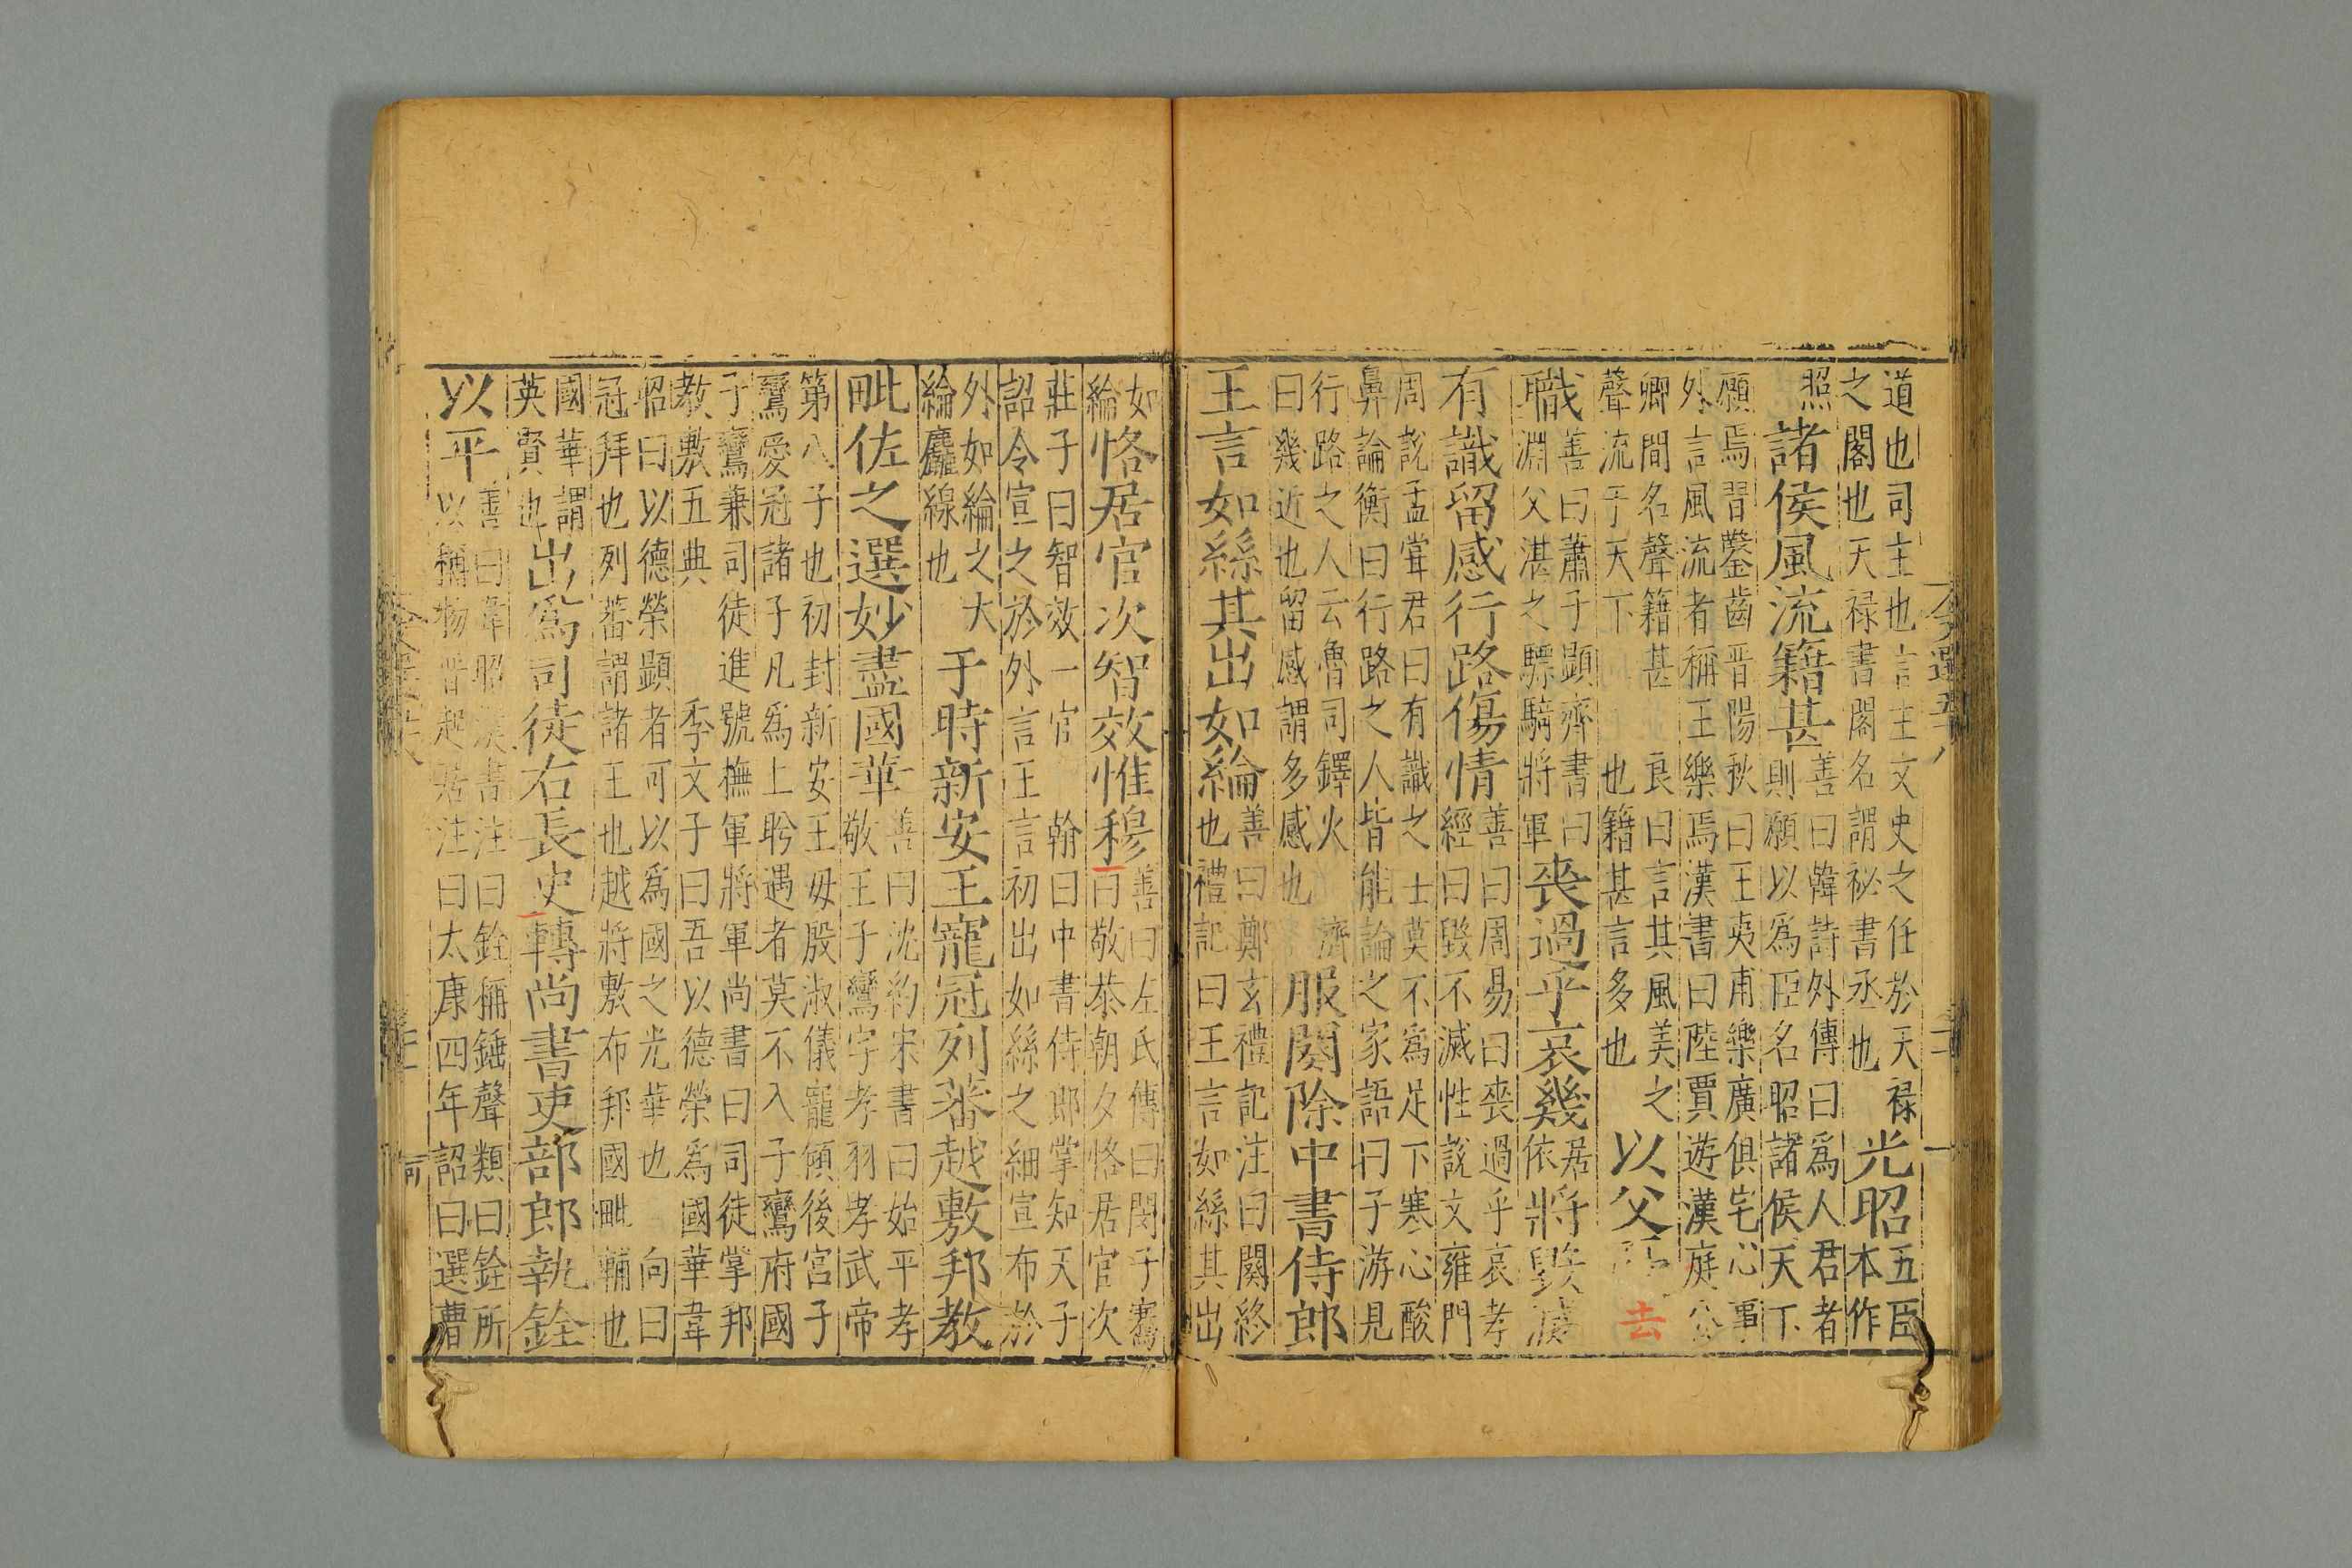 道也司主也言主文史之任於天祿
之閣也天祿書閣名謂祕書丞也
光昭
五臣
本作
照
諸侯風流籍甚
善曰韓詩外傳曰爲人君者
則願以爲臣名昭諸侯天下
願焉習鑿齒晉陽秋曰王夷甫樂廣俱宅心事
外言風流者稱王樂焉漢書曰陸賈遊漢庭公
卿間名聲籍甚
聲流于天下
良曰言其風美之
也籍甚言多也
以父
去
職
善曰蕭子顯齊書曰
淵父湛之驃騎將軍
喪過乎哀幾
居
依
將毀滅
有識留感行路傷情
善曰周易曰喪過乎哀孝
經曰毀不滅性說文雍門
周說孟甞君曰有識之士莫不爲足下寒心酸
鼻論衡曰行路之人皆能論之家語曰子游見
行路之人云魯司鐸火
曰幾近也留感謂多感也
濟
服闋除中書侍郎
王言如絲其出如綸
善曰鄭玄禮記注曰闋終
也禮記曰王言如絲其出
如
綸
恪居官次智效惟穆
善曰左氏傳曰閔子騫
曰敬恭朝夕恪居官次
莊子曰智效一官
翰曰中書侍郎掌知天子
詔令宣之於外言王言初出如絲之細宣布於
外如綸之大
綸麤線也
于時新安王寵冠列蕃越敷邦教
毗佐之選妙盡國華
善曰沈約宋書曰始平孝
敬王子鸞字孝羽孝武帝
第八子也初封新安王母殷淑儀寵傾後宮子
鸞愛冠諸子凡爲上眄遇者莫不入子鸞府國
子鸞兼司徒進號撫軍將軍尚書曰司徒掌邦
教敷五典
季文子曰吾以德榮爲國華韋
昭曰以德榮顯者可以爲國之光華也
向曰
冠拜也列蕃謂諸王也越將敷布邦國毗輔也
國華謂
英賢也
出爲司徒右長史轉尚書吏部郎執銓
以平
善曰韋昭漢書注曰銓稱錘聲類曰銓所
以稱物晉起居注曰太康四年詔曰選曹